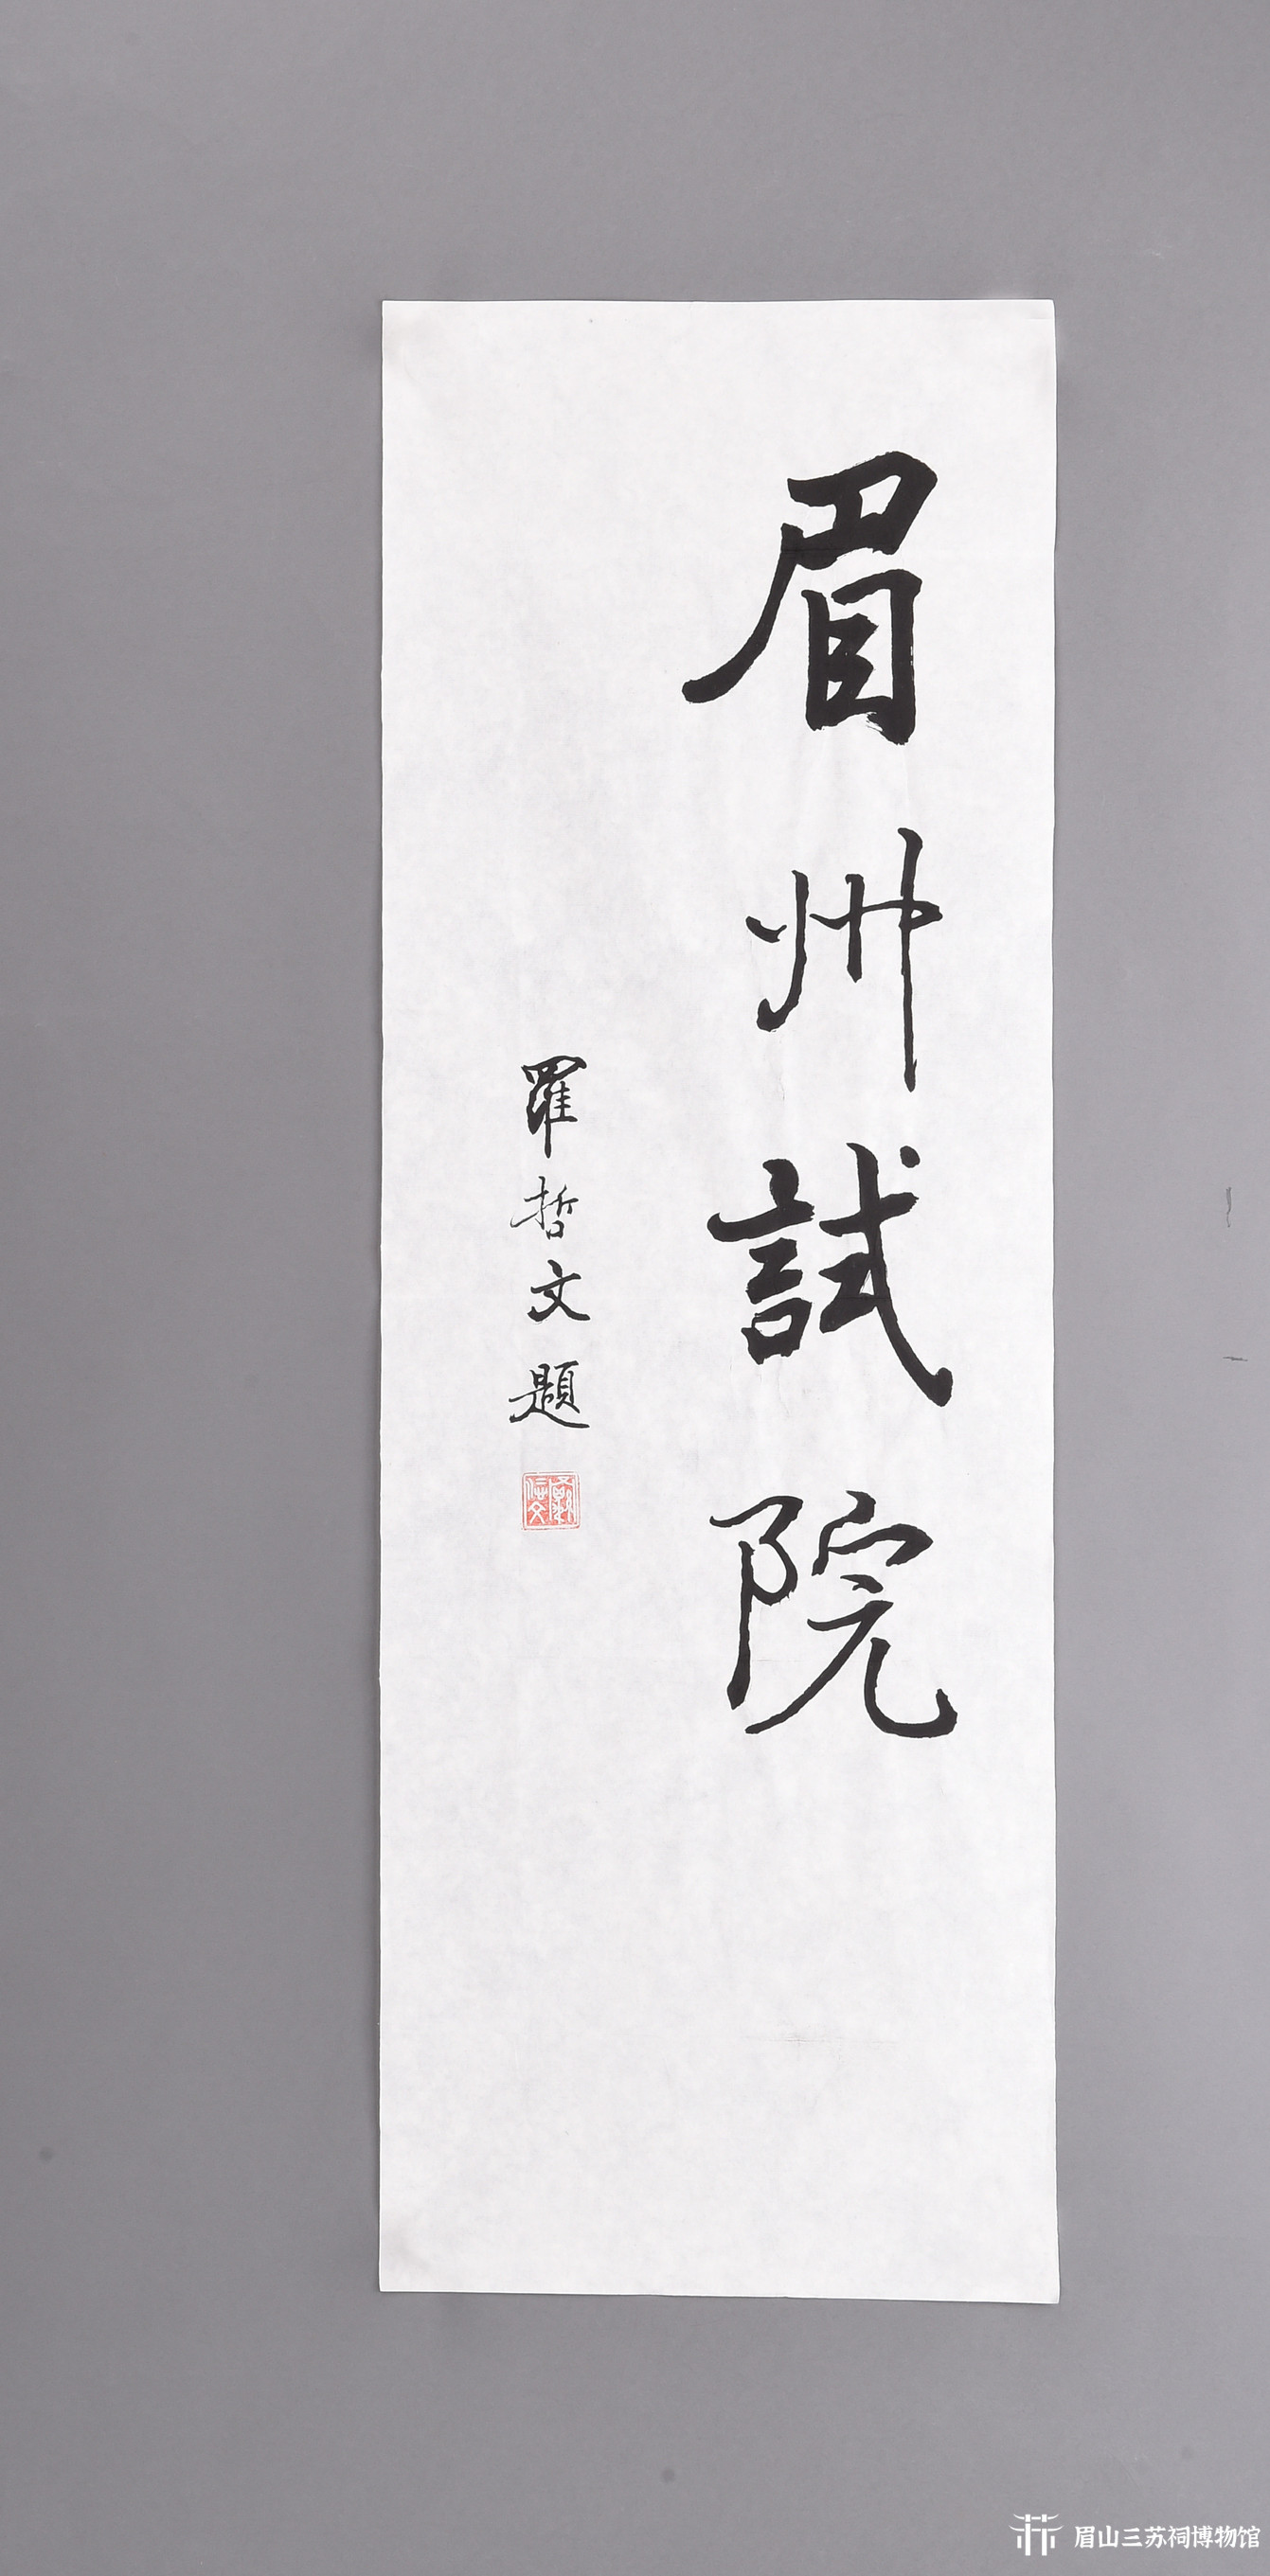 眉州試院
羅哲文題
眉山三苏祠博物馆